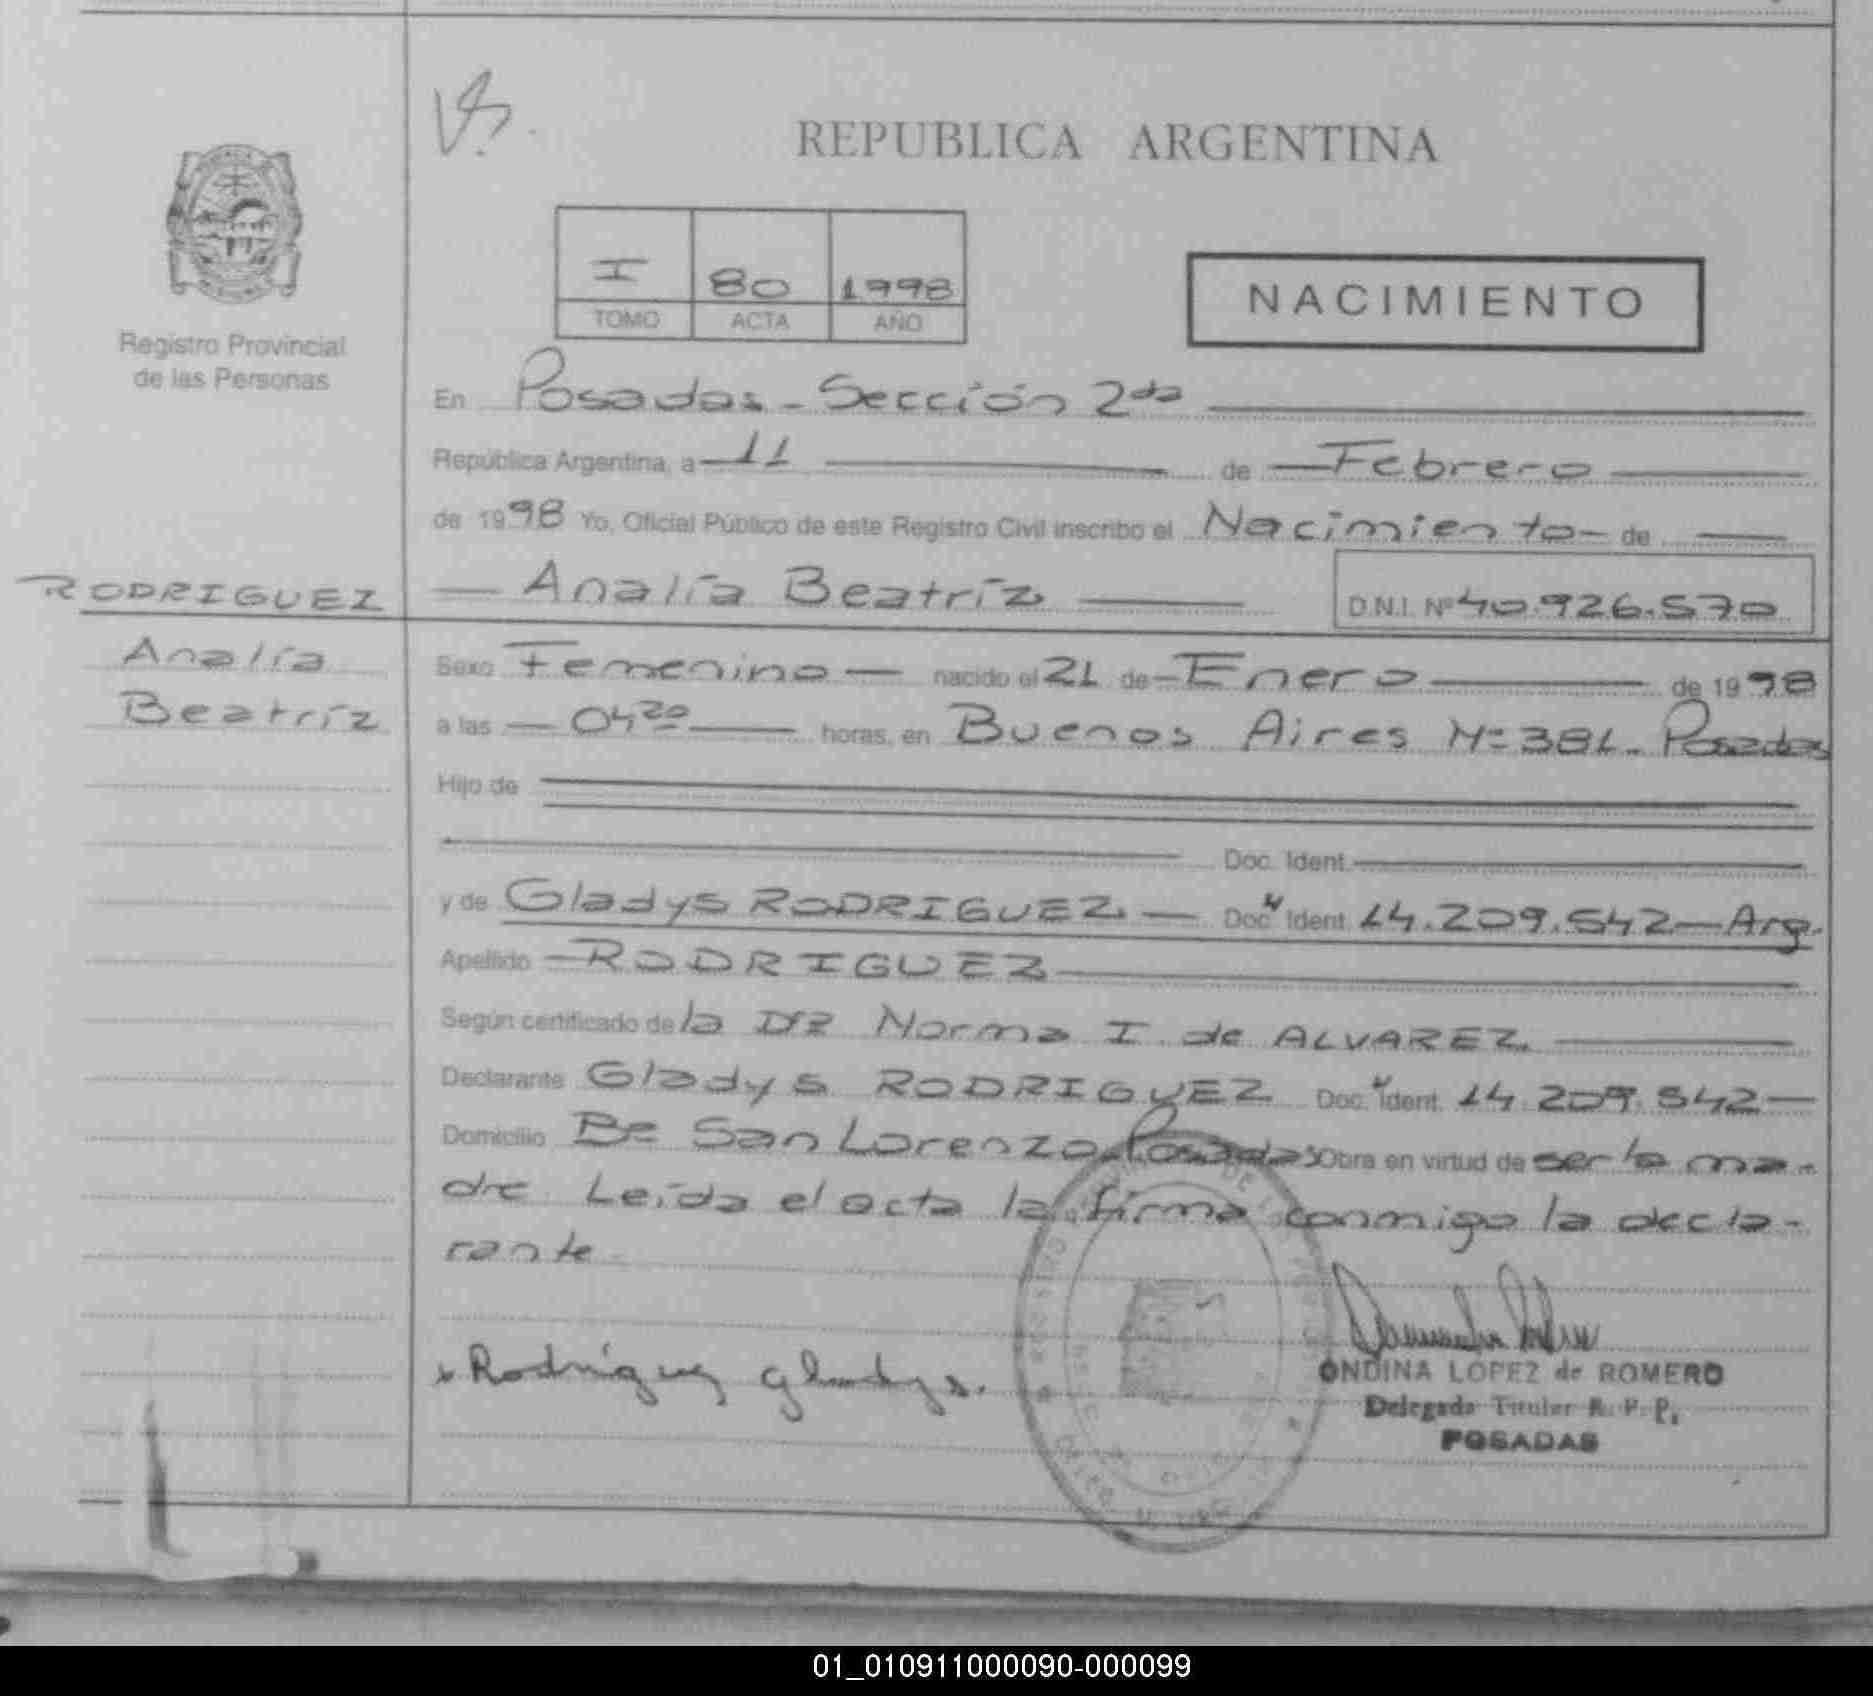 REPUBLICA ARGENTINA
I 80 1998
TOMO ACTA AÑO
NACIMIENTO
Registro Provincial
de las Personas
En Posadas - Sección 2da
República Argentina, a 11 de Febrero
de 1998 Yo, Oficial Público de este Registro Civil inscribo el Nacimiento de
RODRIGUEZ
Analía Beatríz D.N.I. Nº 40.926.570
Analía
Beatríz
Sexo Femenino nacido el 21 de Enero de 1998
a las 04 20 horas, en Buenos Aires Nº 381 - Posadas
Hijo de
Doc. Ident.
y de Gladys RODRIGUEZ Doc. Ident. 14.209.542 - Arg.
Apellido RODRIGUEZ
Según certificado de la DRA Norma I. de ALVAREZ
Declarante Gladys RODRIGUEZ Doc. Ident. 14.209.542
Domicilio Bº San Lorenzo Posadas Obra en virtud de ser la ma-
dre Leída el acta la firma conmigo la decla-
rante
Rodríguez Gladys.
ONDINA LOPEZ de ROMERO
Delegada Titular R. P. P.
POSADAS
01_010911000090-000099